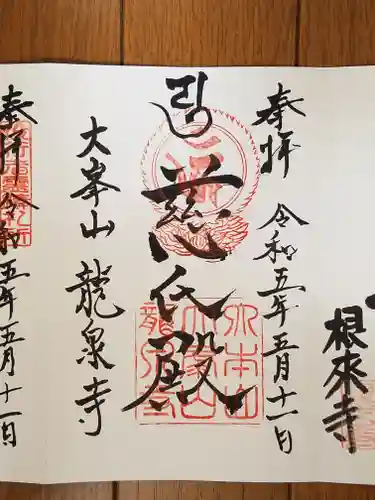 根来寺
奉拝
令和五年五月十一日
慈氏殿
大峯山
龍泉寺
奉拝
令和五年五月十一日